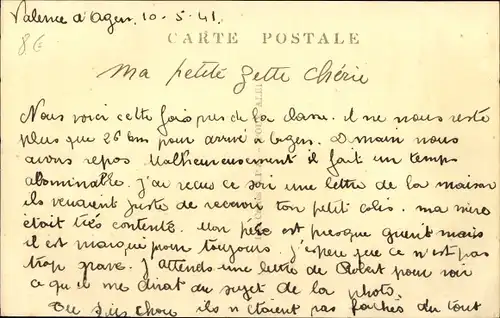 Valence d'Agen. 10-5-41.
8€
CARTE POSTALE
Ma petite Zette Chérie
Nous voici cette fois près de la classe. il ne nous reste
plus que 26 km pour arrivé à Agen. Demain nous
avons repos. Malheureusement il fait un temps
abominable. J'ai recus ce soir une lettre de la maison
ils venaient juste de recevoir ton petit colis. ma mère
était très contente. Mon père est presque guerit mais
il est marqué pour toujours. J'espère que ce n'est pas
trop grave. J'attends une lettre de Robert pour voir
ce qu'il me dirat au sujet de la photo.
Tu sais ils n'étaient pas fachés du tout